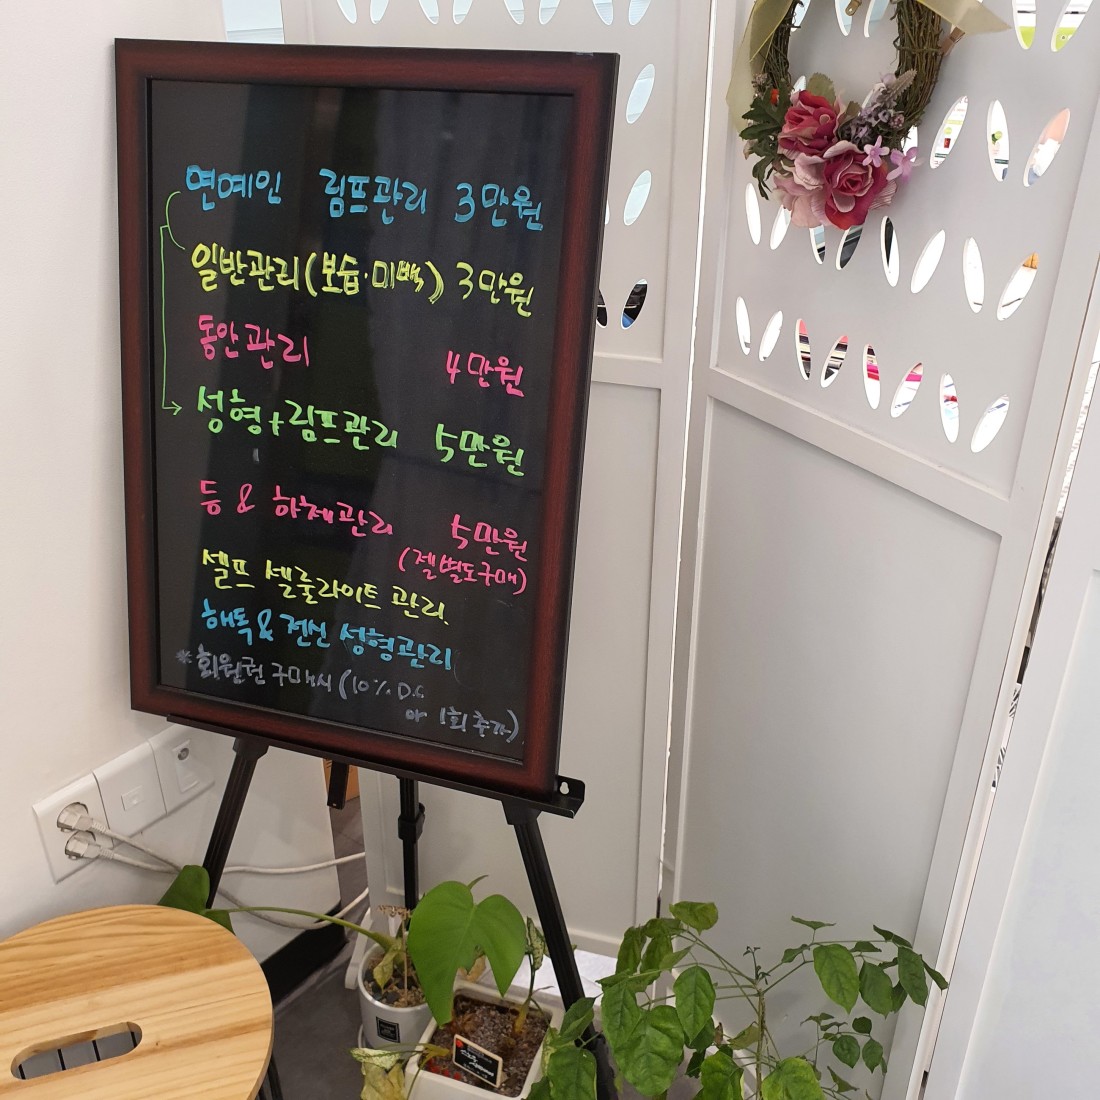 연예인 림프관리 3만원
일반관리(보습·미백) 3만원
동안관리 4만원
성형+림프관리 5만원
등 & 하체관리 5만원
(젤별도구매)
셀프 셀룰라이트 관리.
해독 & 전신 성형관리
*회원권 구매시 (10% D.C
or 1회 추가)